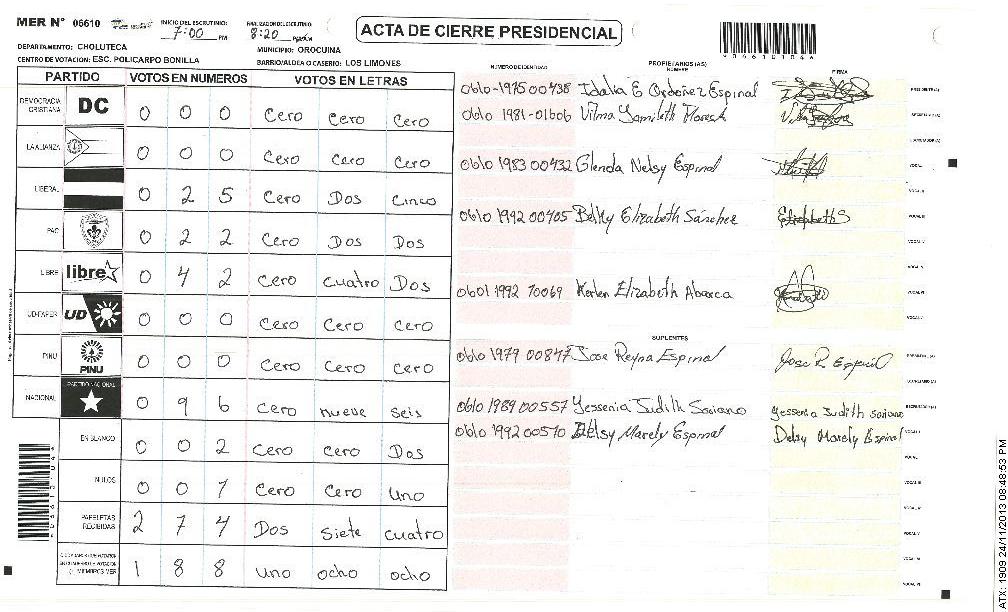 MER N° 06610 INICIO DEL ESCRUTINIO: 7:00 PM FINALIZACION DEL ESCRUTINIO 8:20 ACTA DE CIERRE PRESIDENCIAL
DEPARTAMENTO: CHOLUTECA MUNICIPIO: OROCUINA
CENTRO DE VOTACION: ESC. POLICARPO BONILLA BARRIO/ALDEA O CASERIO: LOS LIMONES
PARTIDO VOTOS EN NUMEROS VOTOS EN LETRAS
NUMERO DE IDENTIDAD PROPIETARIOS (AS) NOMBRE FIRMA
DEMOCRACIA CRISTIANA DC 0 0 0 Cero Cero Cero
LA ALIANZA 0 0 0 Cero Cero Cero
LIBERAL 0 2 5 Cero Dos Cinco
PAC 0 2 2 Cero Dos Dos
LIBRE libre 0 4 2 Cero cuatro Dos
UD-FAPER UD 0 0 0 Cero Cero Cero
PINU PINU 0 0 0 Cero Cero Cero
NACIONAL PARTIDO NACIONAL 0 9 6 Cero nueve seis
EN BLANCO 0 0 2 Cero Cero Dos
NULOS 0 0 1 Cero Cero Uno
PAPELETAS RECIBIDAS 2 7 4 Dos Siete cuatro
1 8 8 uno ocho ocho
0610-1975 00438 Idalia E Ordoñez Espinal
0610 1981-01606 Vilma Yamileth
0610 1983 00432 Glenda Nelsy Espinal
0610 1992 00405 Belky Elizabeth Sánchez Elizabeth S
0601 1992 10069 Kerlen Elizabeth Abarca
SUPLENTES
0610 1979 00847 Jose Reyna Espinal Jose R. Espinal
0610 1989 00557 Yessenia Judith Soriano Yessenia Judith Soriano
0610 1992 00510 Delsy Marely Espinal Delsy Marely Espinal
ATX: 1909 24/11/2013 08:48:53 PM